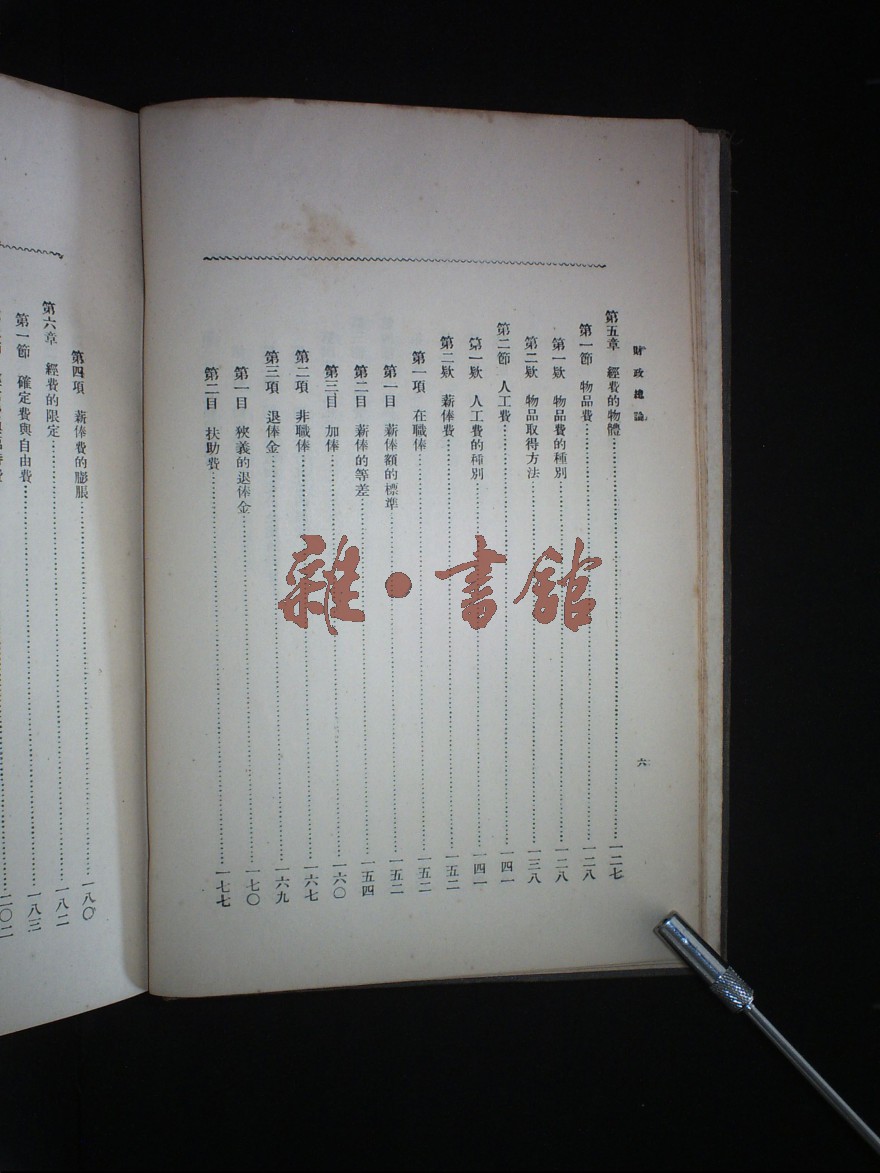 財政總論
六
第五章 經費的物體……一二七
第一節 物品費……一二八
第一欵 物品費的種別……一二八
第二欵 物品取得方法……一三八
第二節 人工費……一四一
第一欵 人工費的種別……一四一
第二欵 薪俸費……一五二
第一項 在職俸……一五二
第一目 薪俸額的標準……一五二
第二目 薪俸的等差……一五四
第三目 加俸……一六〇
第二項 非職俸……一六七
第三項 退俸金……一六九
第一目 狹義的退俸金……一七〇
第二目 扶助費……一七七
雜•書館
第四項 薪俸費的膨脹……一八〇
第六章 經費的限定……一八二
第一節 確定費與自由費……一八三
二〇二